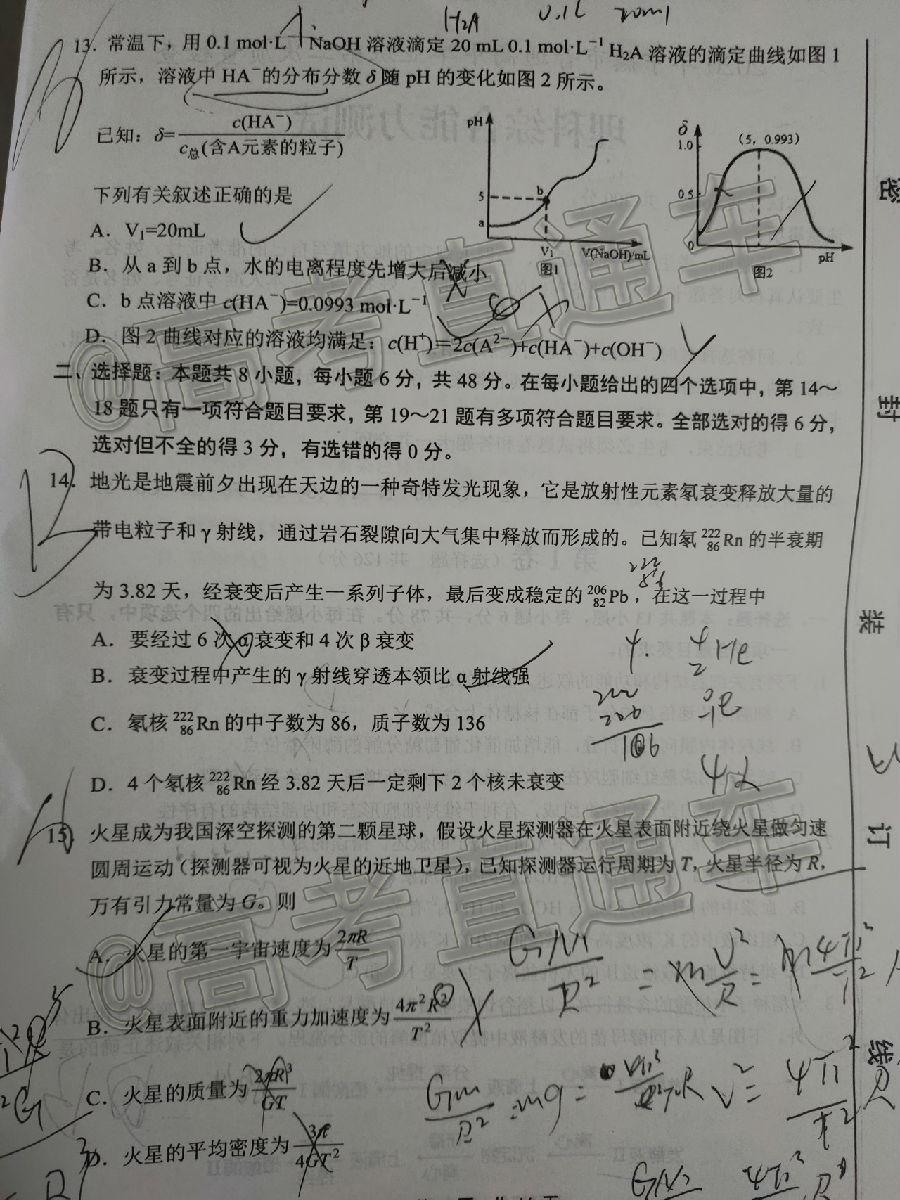 H₂A 0.1L 20ml
13. 常温下，用 0.1 mol·L⁻¹ NaOH 溶液滴定 20 mL 0.1 mol·L⁻¹ H₂A 溶液的滴定曲线如图 1
所示，溶液中 HA⁻的分布分数 δ 随 pH 的变化如图 2 所示。
已知：δ= c(HA⁻) / c总(含A元素的粒子)
pH
5
b
a
V₁
V(NaOH)/mL
图1
δ
(5, 0.993)
1.0
0.5
0
pH
图2
下列有关叙述正确的是
A．V₁=20mL
B．从 a 到 b 点，水的电离程度先增大后减小
C．b 点溶液中 c(HA⁻)=0.0993 mol·L⁻¹
D．图 2 曲线对应的溶液均满足：c(H⁺)=2c(A²⁻)+c(HA⁻)+c(OH⁻)
二、选择题：本题共 8 小题，每小题 6 分，共 48 分。在每小题给出的四个选项中，第 14～
18 题只有一项符合题目要求，第 19～21 题有多项符合题目要求。全部选对的得 6 分，
选对但不全的得 3 分，有选错的得 0 分。
14．地光是地震前夕出现在天边的一种奇特发光现象，它是放射性元素氡衰变释放大量的
带电粒子和 γ 射线，通过岩石裂隙向大气集中释放而形成的。已知氡 ²²²₈₆Rn 的半衰期
为 3.82 天，经衰变后产生一系列子体，最后变成稳定的 ²⁰⁶₈₂Pb，在这一过程中
A．要经过 6 次 α 衰变和 4 次 β 衰变
B．衰变过程中产生的 γ 射线穿透本领比 α 射线强
C．氡核 ²²²₈₆Rn 的中子数为 86，质子数为 136
D．4 个氡核 ²²²₈₆Rn 经 3.82 天后一定剩下 2 个核未衰变
⁴₂He
4α
15．火星成为我国深空探测的第二颗星球，假设火星探测器在火星表面附近绕火星做匀速
圆周运动（探测器可视为火星的近地卫星），已知探测器运行周期为 T，火星半径为 R，
万有引力常量为 G。则
A．火星的第一宇宙速度为 2πR/T
B．火星表面附近的重力加速度为 4π²R²/T²
C．火星的质量为 2πR³/GT
D．火星的平均密度为 3π/4GT²
密
封
装
订
线
@高考直通车
@高考直通车